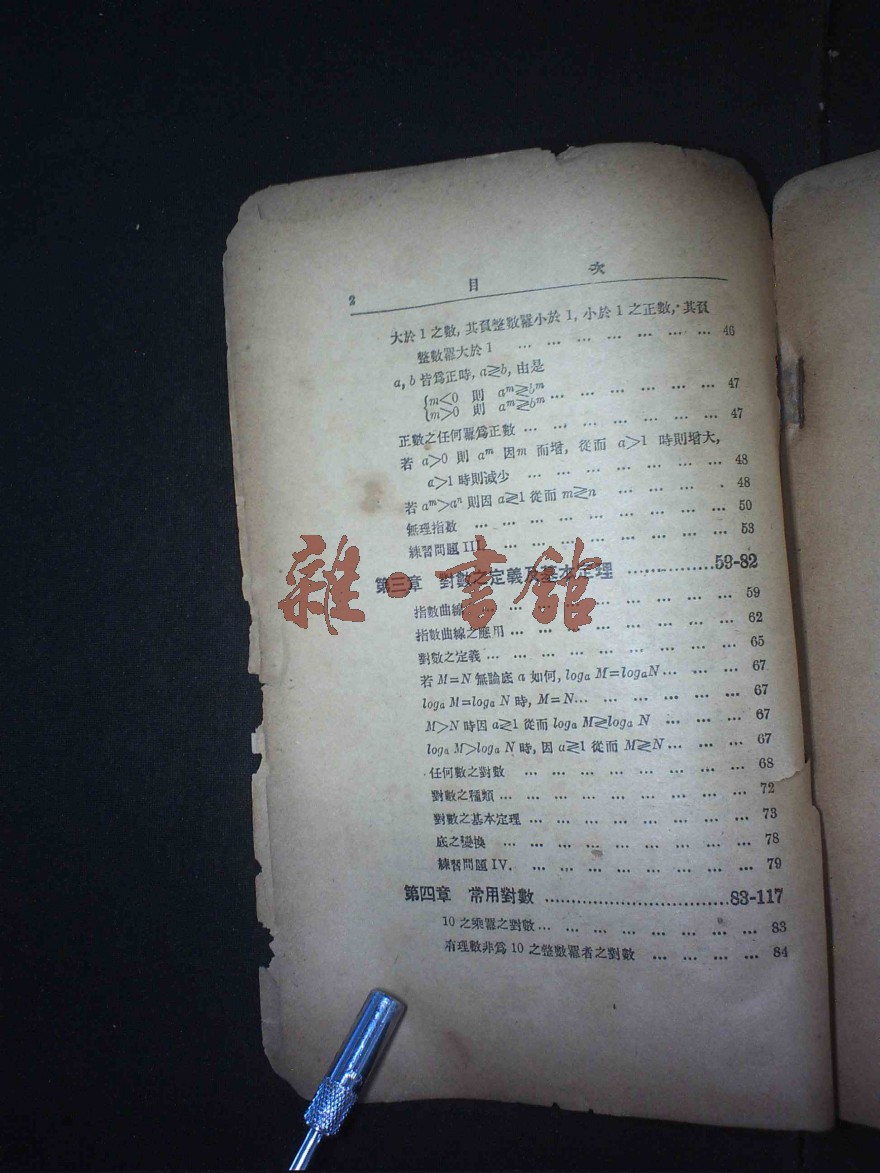 2 目 次
大於 1 之數, 其負整數羃小於 1, 小於 1 之正數, 其負
整數羃大於 1 … … … … … … … 46
a, b 皆爲正時, a≷b, 由是
{m<0 則 aᵐ≶bᵐ … … … … … … 47
{m>0 則 aᵐ≷bᵐ
正數之任何羃爲正數 … … … … … … … 47
若 a>0 則 aᵐ 因 m 而增, 從而 a>1 時則增大,
a>1 時則減少 … … … … … … … 48
若 aᵐ>aⁿ 則因 a≷1 從而 m≷n … … … . 48
無理指數 … … … … … … … … … 50
練習問題 III. … … … … … … … … 53
第三章 對數之定義及基本定理 ………… 59-82
指數曲線 … … … … … … … … … 59
指數曲線之應用 … … … … … … … … 62
對數之定義 … … … … … … … … … 65
若 M=N 無論底 a 如何, logₐ M=logₐN … … … 67
logₐ M=logₐ N 時, M=N… … … … … … 67
M>N 時因 a≷1 從而 logₐ M≷logₐ N … … … 67
logₐ M>logₐ N 時, 因 a≷1 從而 M≷N … … … 67
任何數之對數 … … … … … … … … 68
對數之種類 … … … … … … … … … 72
對數之基本定理 … … … … … … … … 73
底之變換 … … … … … … … … … 78
練習問題 IV. … … … … … … … … 79
第四章 常用對數 ………………………… 83-117
10 之乘羃之對數 … … … … … … … … 83
有理數非爲 10 之整數羃者之對數 … … … … 84
雜·書館